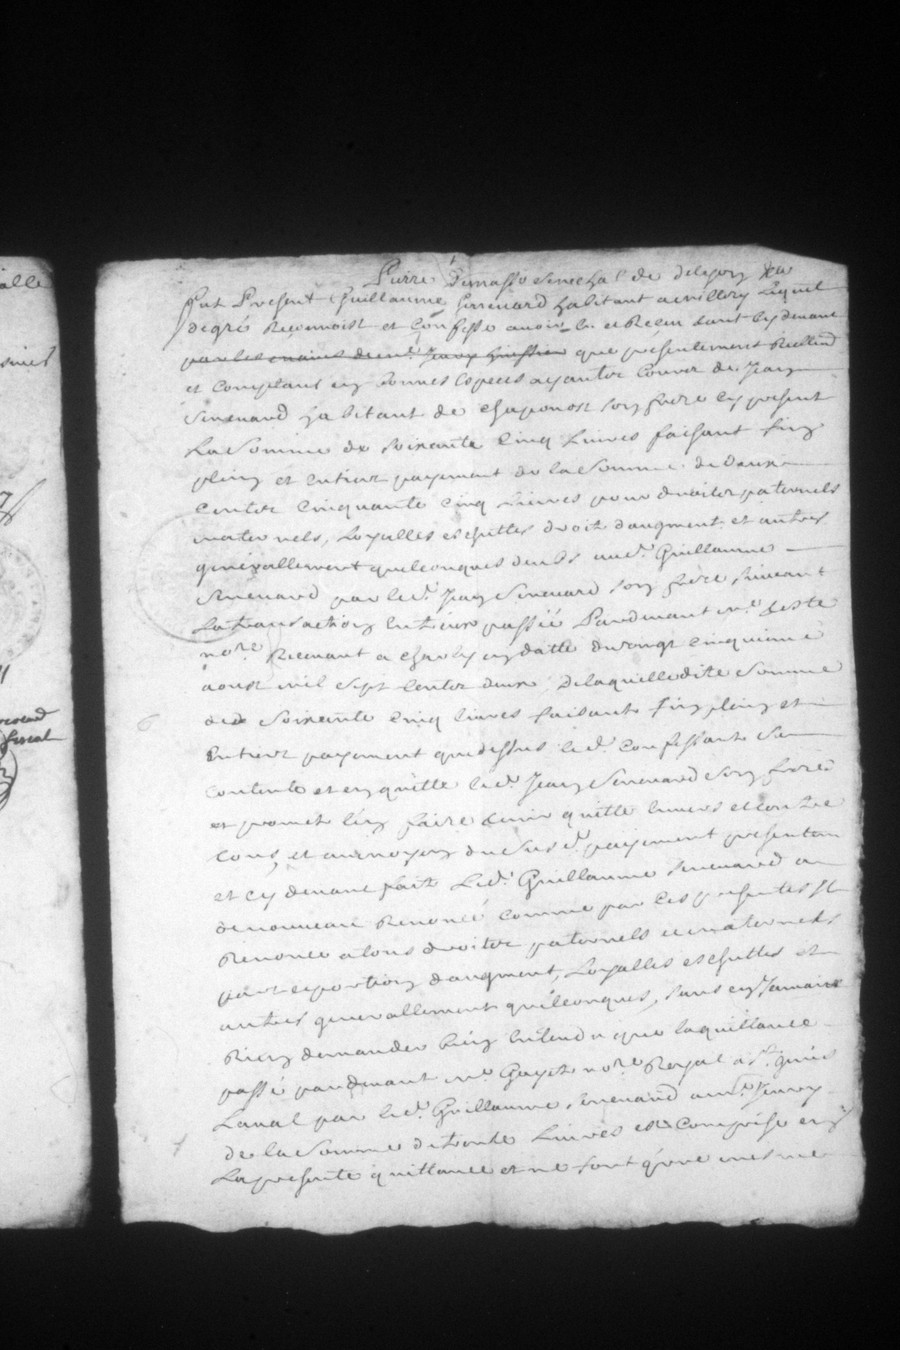 alle
Pierre Dumasso senechal de
Fut Present Guillaume Seneuard habitant a millery Lequel
degré Reconnoist et Confesse auoir eu et Receu tant cy deuant
par les mains de me Jean que presentement Reellemt
et Comptant en bonnes Especes ayantes Cours de Jean
Seneuard habitant de chaponost son frere cy present
La Somme de soixante Cinq Liures faisant fin
plein et Entier payement de la Somme de Deux
Centes Cinquante Cinq Liures pour droites paternels
maternels, Loyalles eschuttes droit daugment et autres
generallement quelconques deubs aud. Guillaume
Seneuard par led. Jean Seneuard son frere suiuant
La transaction Entreux passée Pardeuant me
nore Receuant a charly en datte du vingt Cinquieme
aoust mil sept Centes deux, De laquelle dite Somme
de Soixante Cinq liures faisante fin plein et
Entier payement que dessus led. Confessant Se
Contente et en quitte led. Jean Seneuard son frere
et promet len faire tenir quitte Enuers et Contre
tous, et au moyen du susd. payement presentem
et cy deuant fait Led. Guillaume Seneuard a
de nouueau Renoncé Comme par Ces presentes Il
Renonce a tous droites paternels et maternels
part et portion daugment, Loyalles eschuttes et
autres generallement quelconques, sans en Jamais
Rien demander bien Entendu que la quittance
passé pardeuant me Gayet nore Royal a St genis
Laual par led. Guillaume Seneuard aud. Jean
de la Somme de trente Liures est Comprise en
La presente quittance et ne font qune mesme